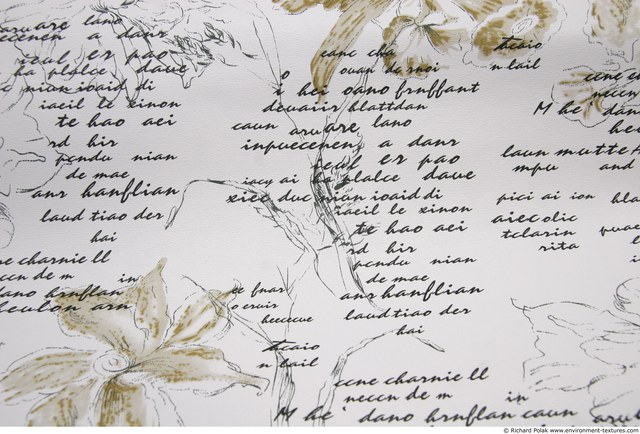 aruare lano
a danr
ieul er pao
ha plalce daue
niun ioaid di
iaeil le xinon
te hao aei
rd hir
pendu nian
de mae
anr hanflian
laud tiao der
hai
cne charnie ll
neccn de m in
dano hrnflan
ceulon arn
canc cha
ouan da snoi
i hei oano frnffant
deuaiir blattdan
caun aruare lano
inpuecenen, a danr
ieul er pao
iacy ai ha plalce daue
xiee duc niun ioaid di
iaeil le xinon
te hao aei
rd hir
pendu nian
de mae
anr hanflian
laud tiao der
hai
ee fnar
o eruir
heeceue
tcaio
n lail
ccne charnie ll
neccn de m in
M he' dano hrnflan caun aruar
tcaio
n lail
ccne
neccn
M he' dan
laun mutte
mpu and
pici ai ion bla
aiec olic
tclarin
rita
© Richard Polak www.environment-textures.com